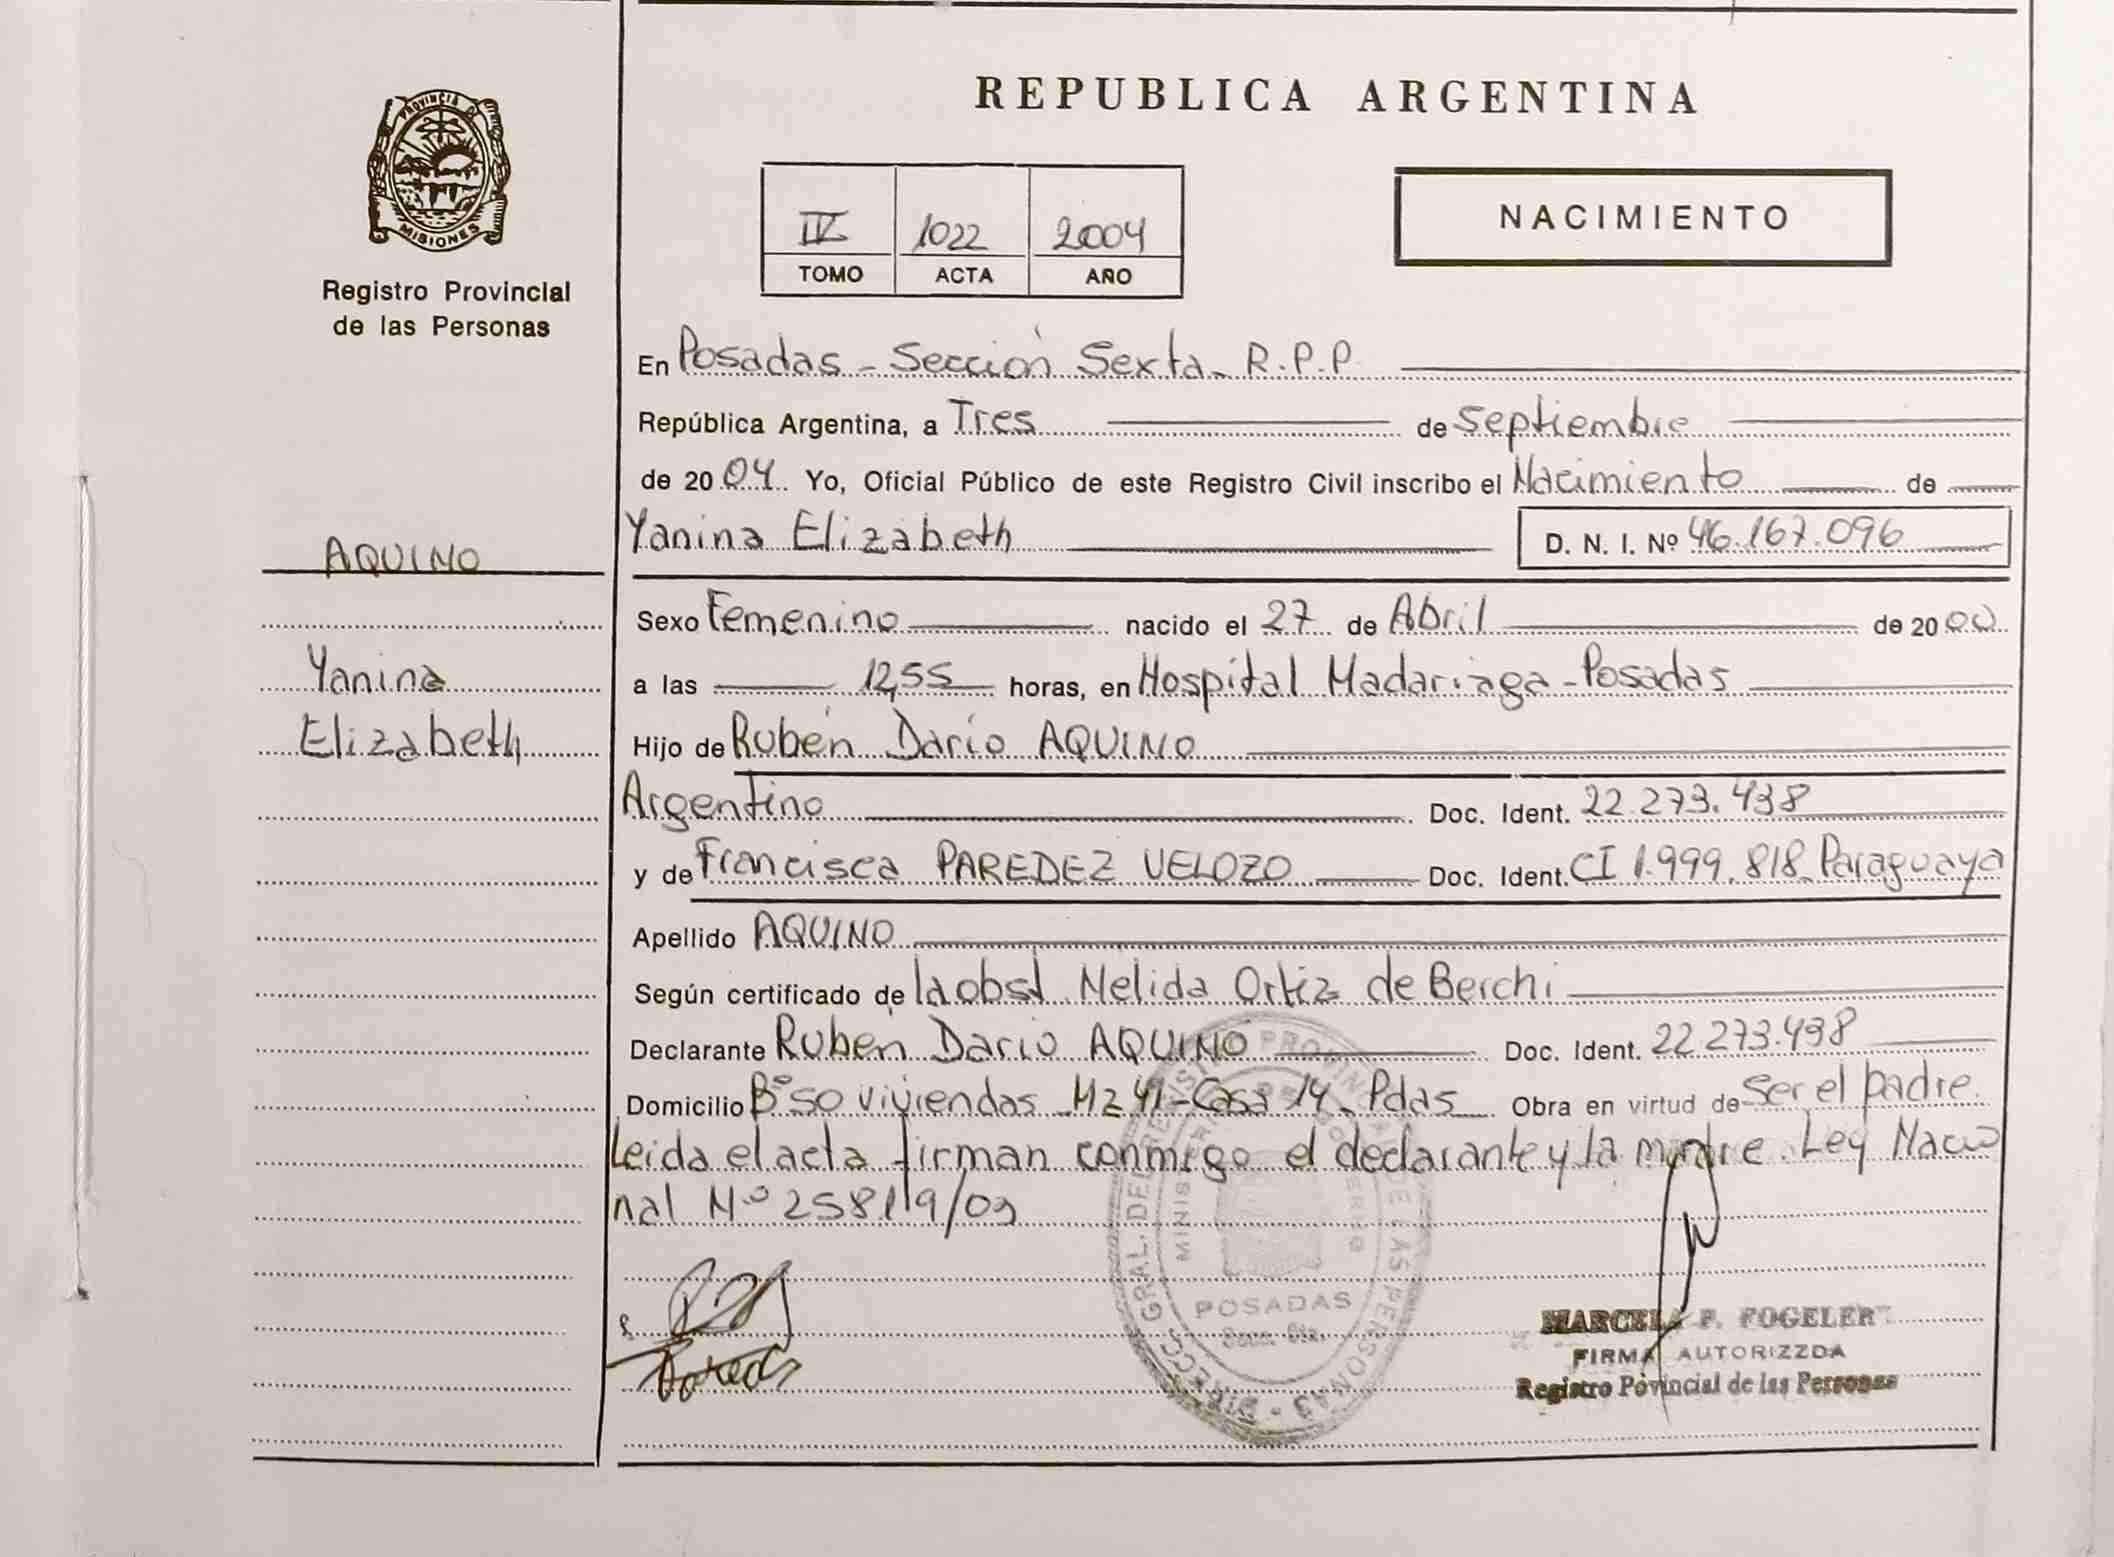 REPUBLICA ARGENTINA
PROVINCIA DE
MISIONES
Registro Provincial
de las Personas
IV 1022 2004
TOMO ACTA AÑO
NACIMIENTO
En Posadas - Sección Sexta - R.P.P.
República Argentina, a Tres de septiembre
de 2004 Yo, Oficial Público de este Registro Civil inscribo el Nacimiento de
Yanina Elizabeth D. N. I. Nº 46.167.096
AQUINO
Yanina
Elizabeth
Sexo Femenino nacido el 27 de Abril de 2000
a las 12,55 horas, en Hospital Madariaga - Posadas
Hijo de Rubén Darío AQUINO
Argentino Doc. Ident. 22.273.438
y de Francisca PAREDEZ VELOZO Doc. Ident. CI 1.999.818 Paraguaya
Apellido AQUINO
Según certificado de la obst. Nelida Ortiz de Berchi
Declarante Rubén Dario AQUINO Doc. Ident. 22.273.438
Domicilio Bº 50 viviendas Mz 41 - Casa 14 - Pdas Obra en virtud de Ser el padre.
Leida el acta firman conmigo el declarante y la madre. Ley Nacio
nal Nº 25819/03
DIRECC. GRAL. DEL REGISTRO PROVINCIAL DE LAS PERSONAS
MINISTERIO DE GOBIERNO
POSADAS
MARCELA F. FOGELER
FIRMA AUTORIZZDA
Registro Povincial de las Personas